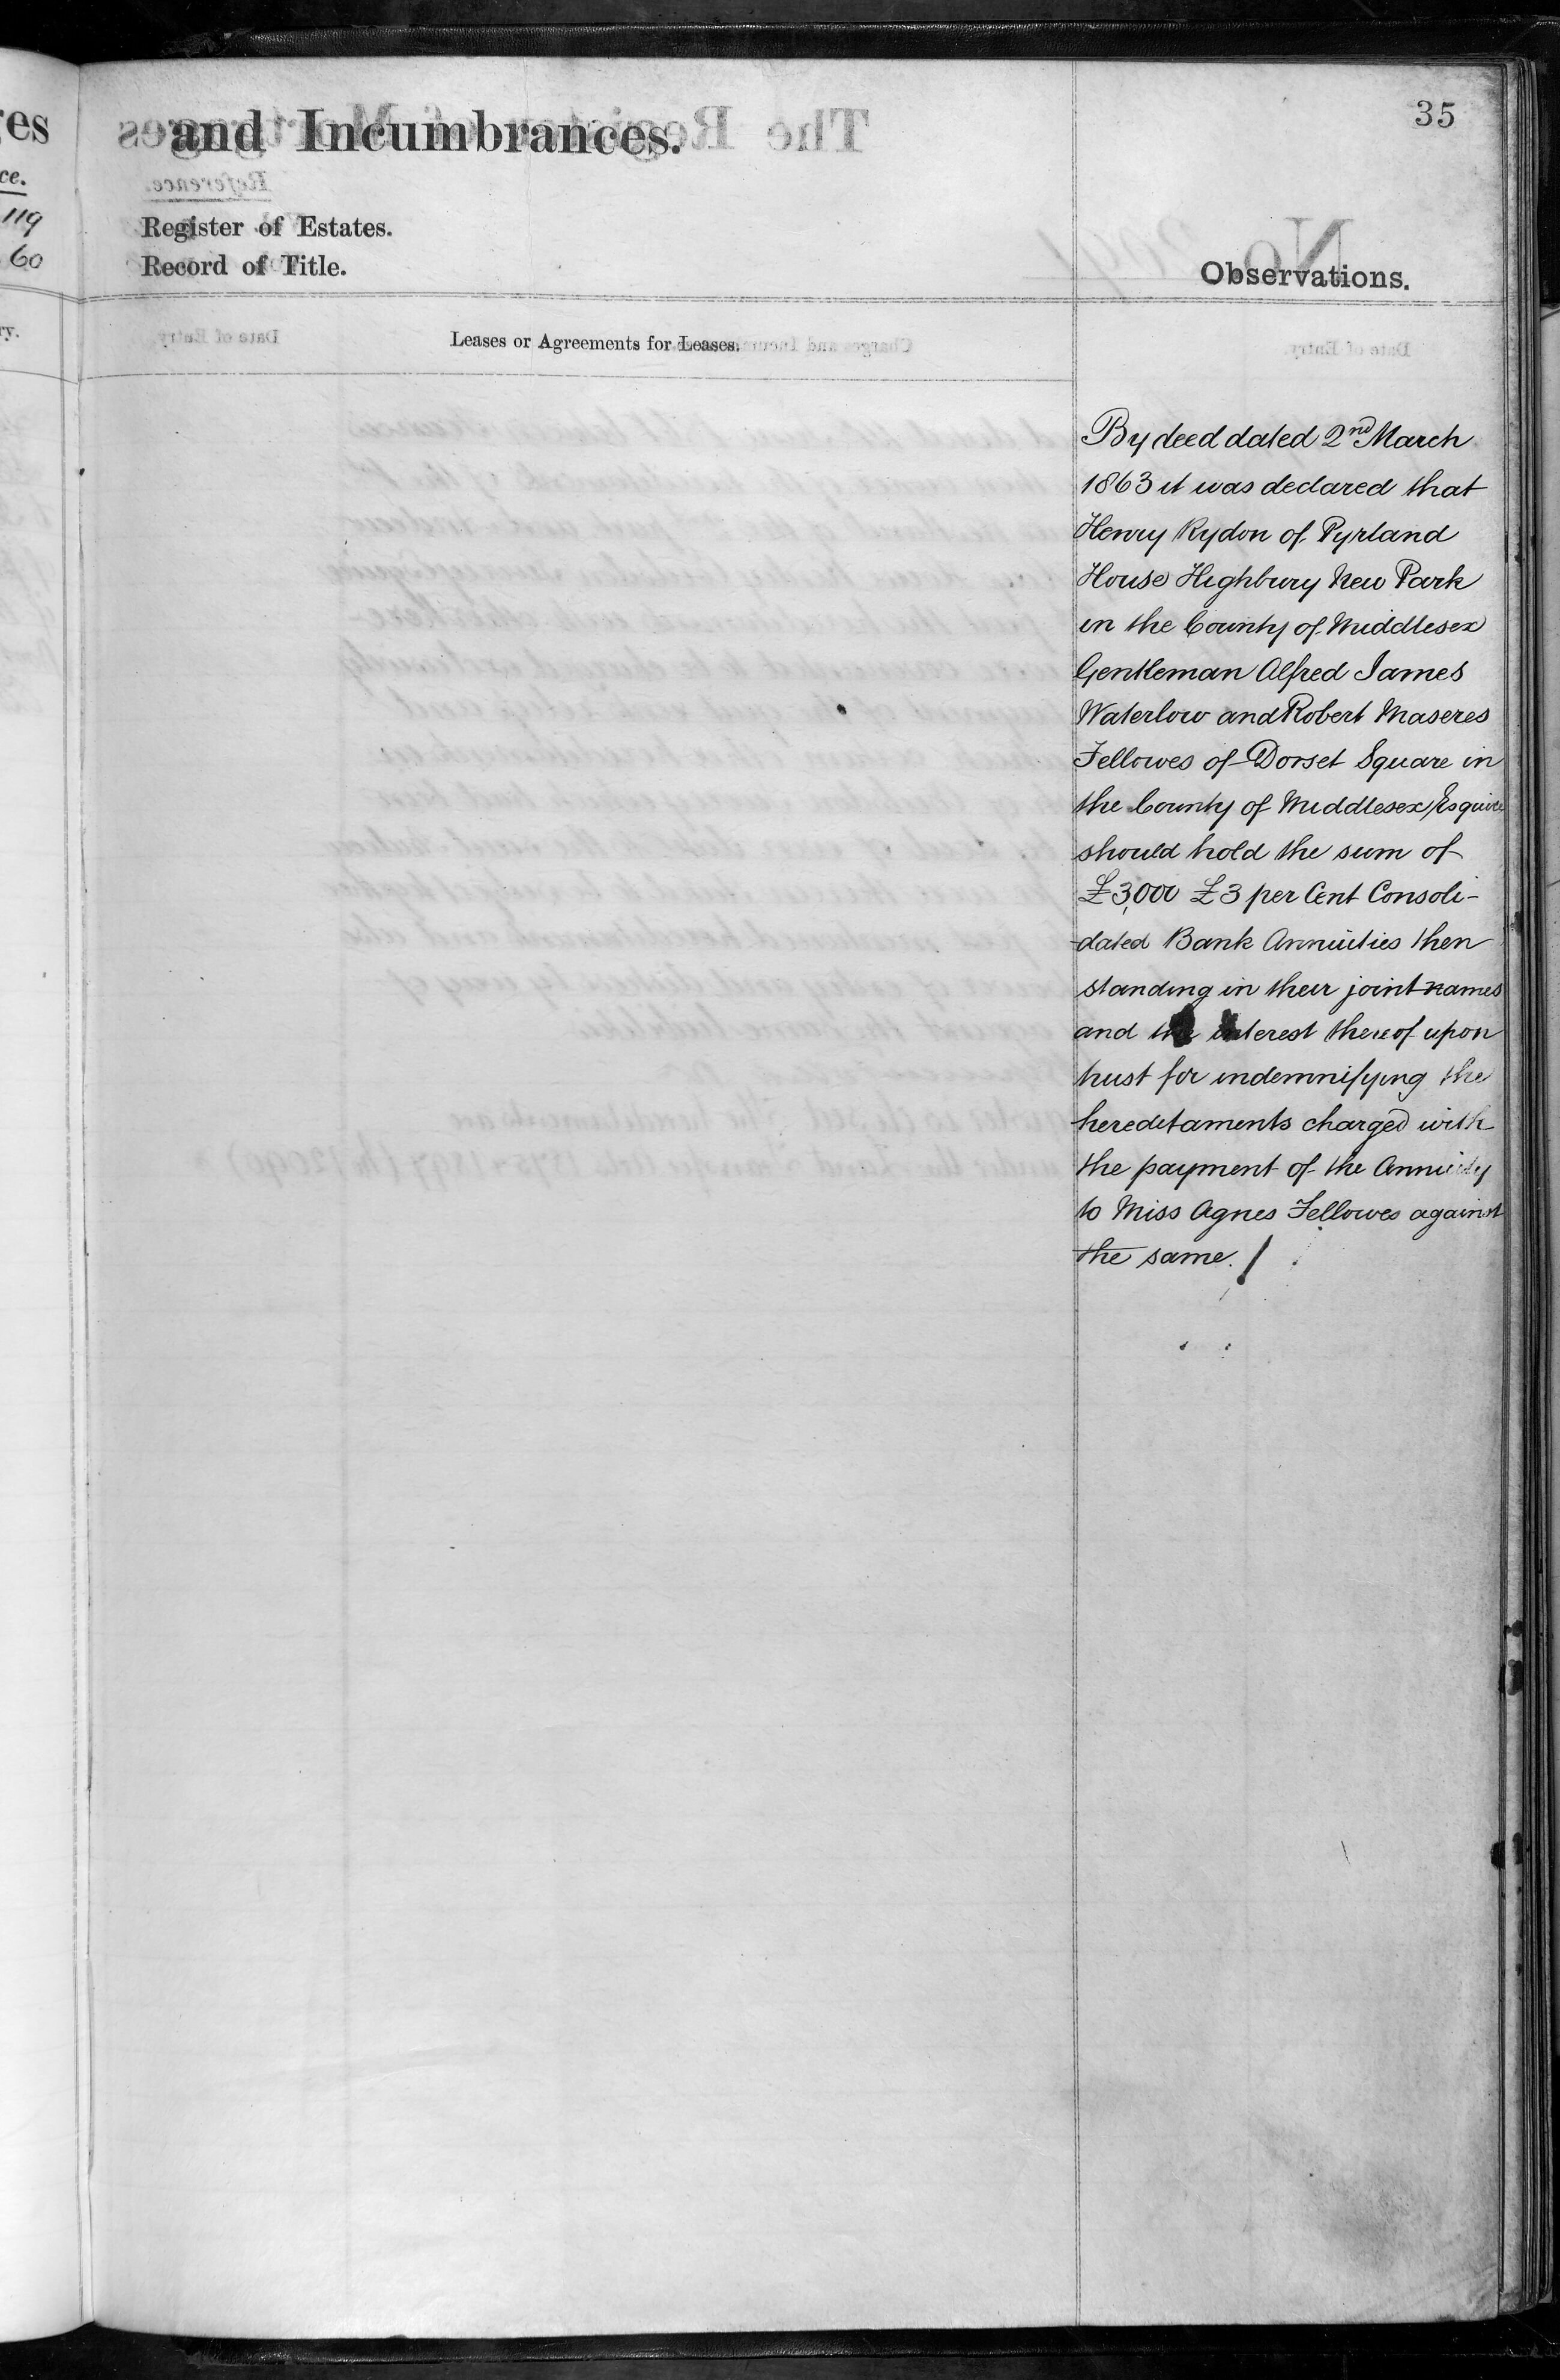 35
es
and Incumbrances.
ce.
119
Register of Estates.
60
Record of Title.
Observations.
ry.
Leases or Agreements for Leases.
By deed dated 2nd March
1863 it was declared that
Henry Rydon of Pyrland
House Highbury New Park
in the County of Middlesex
Gentleman Alfred James
Waterlow and Robert Maseres
Fellowes of Dorset Square in
the County of Middlesex Esquire
should hold the sum of
£3,000 £3 per Cent Consoli-
dated Bank Annuities then
standing in their joint names
and the interest thereof upon
trust for indemnifying the
hereditaments charged with
the payment of the Annuity
to Miss Agnes Fellowes against
the same.